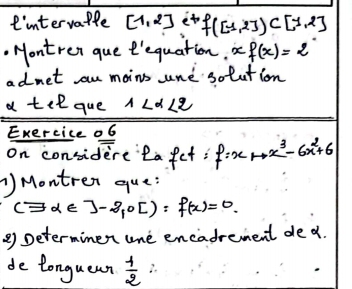 l'intervalle [1,2] et f([1,2])⊂[1,2]
• Montrer que l'equation x f(x) = 2
admet au moins une solution
α tel que 1<α<2
Exercice 06
On considère la fct : f:x↦x³-6x²+6
1) Montrer que:
(∃α∈]-2,0[) : f(α)=0.
2) Determiner une encadrement de α.
de longueur 1/2